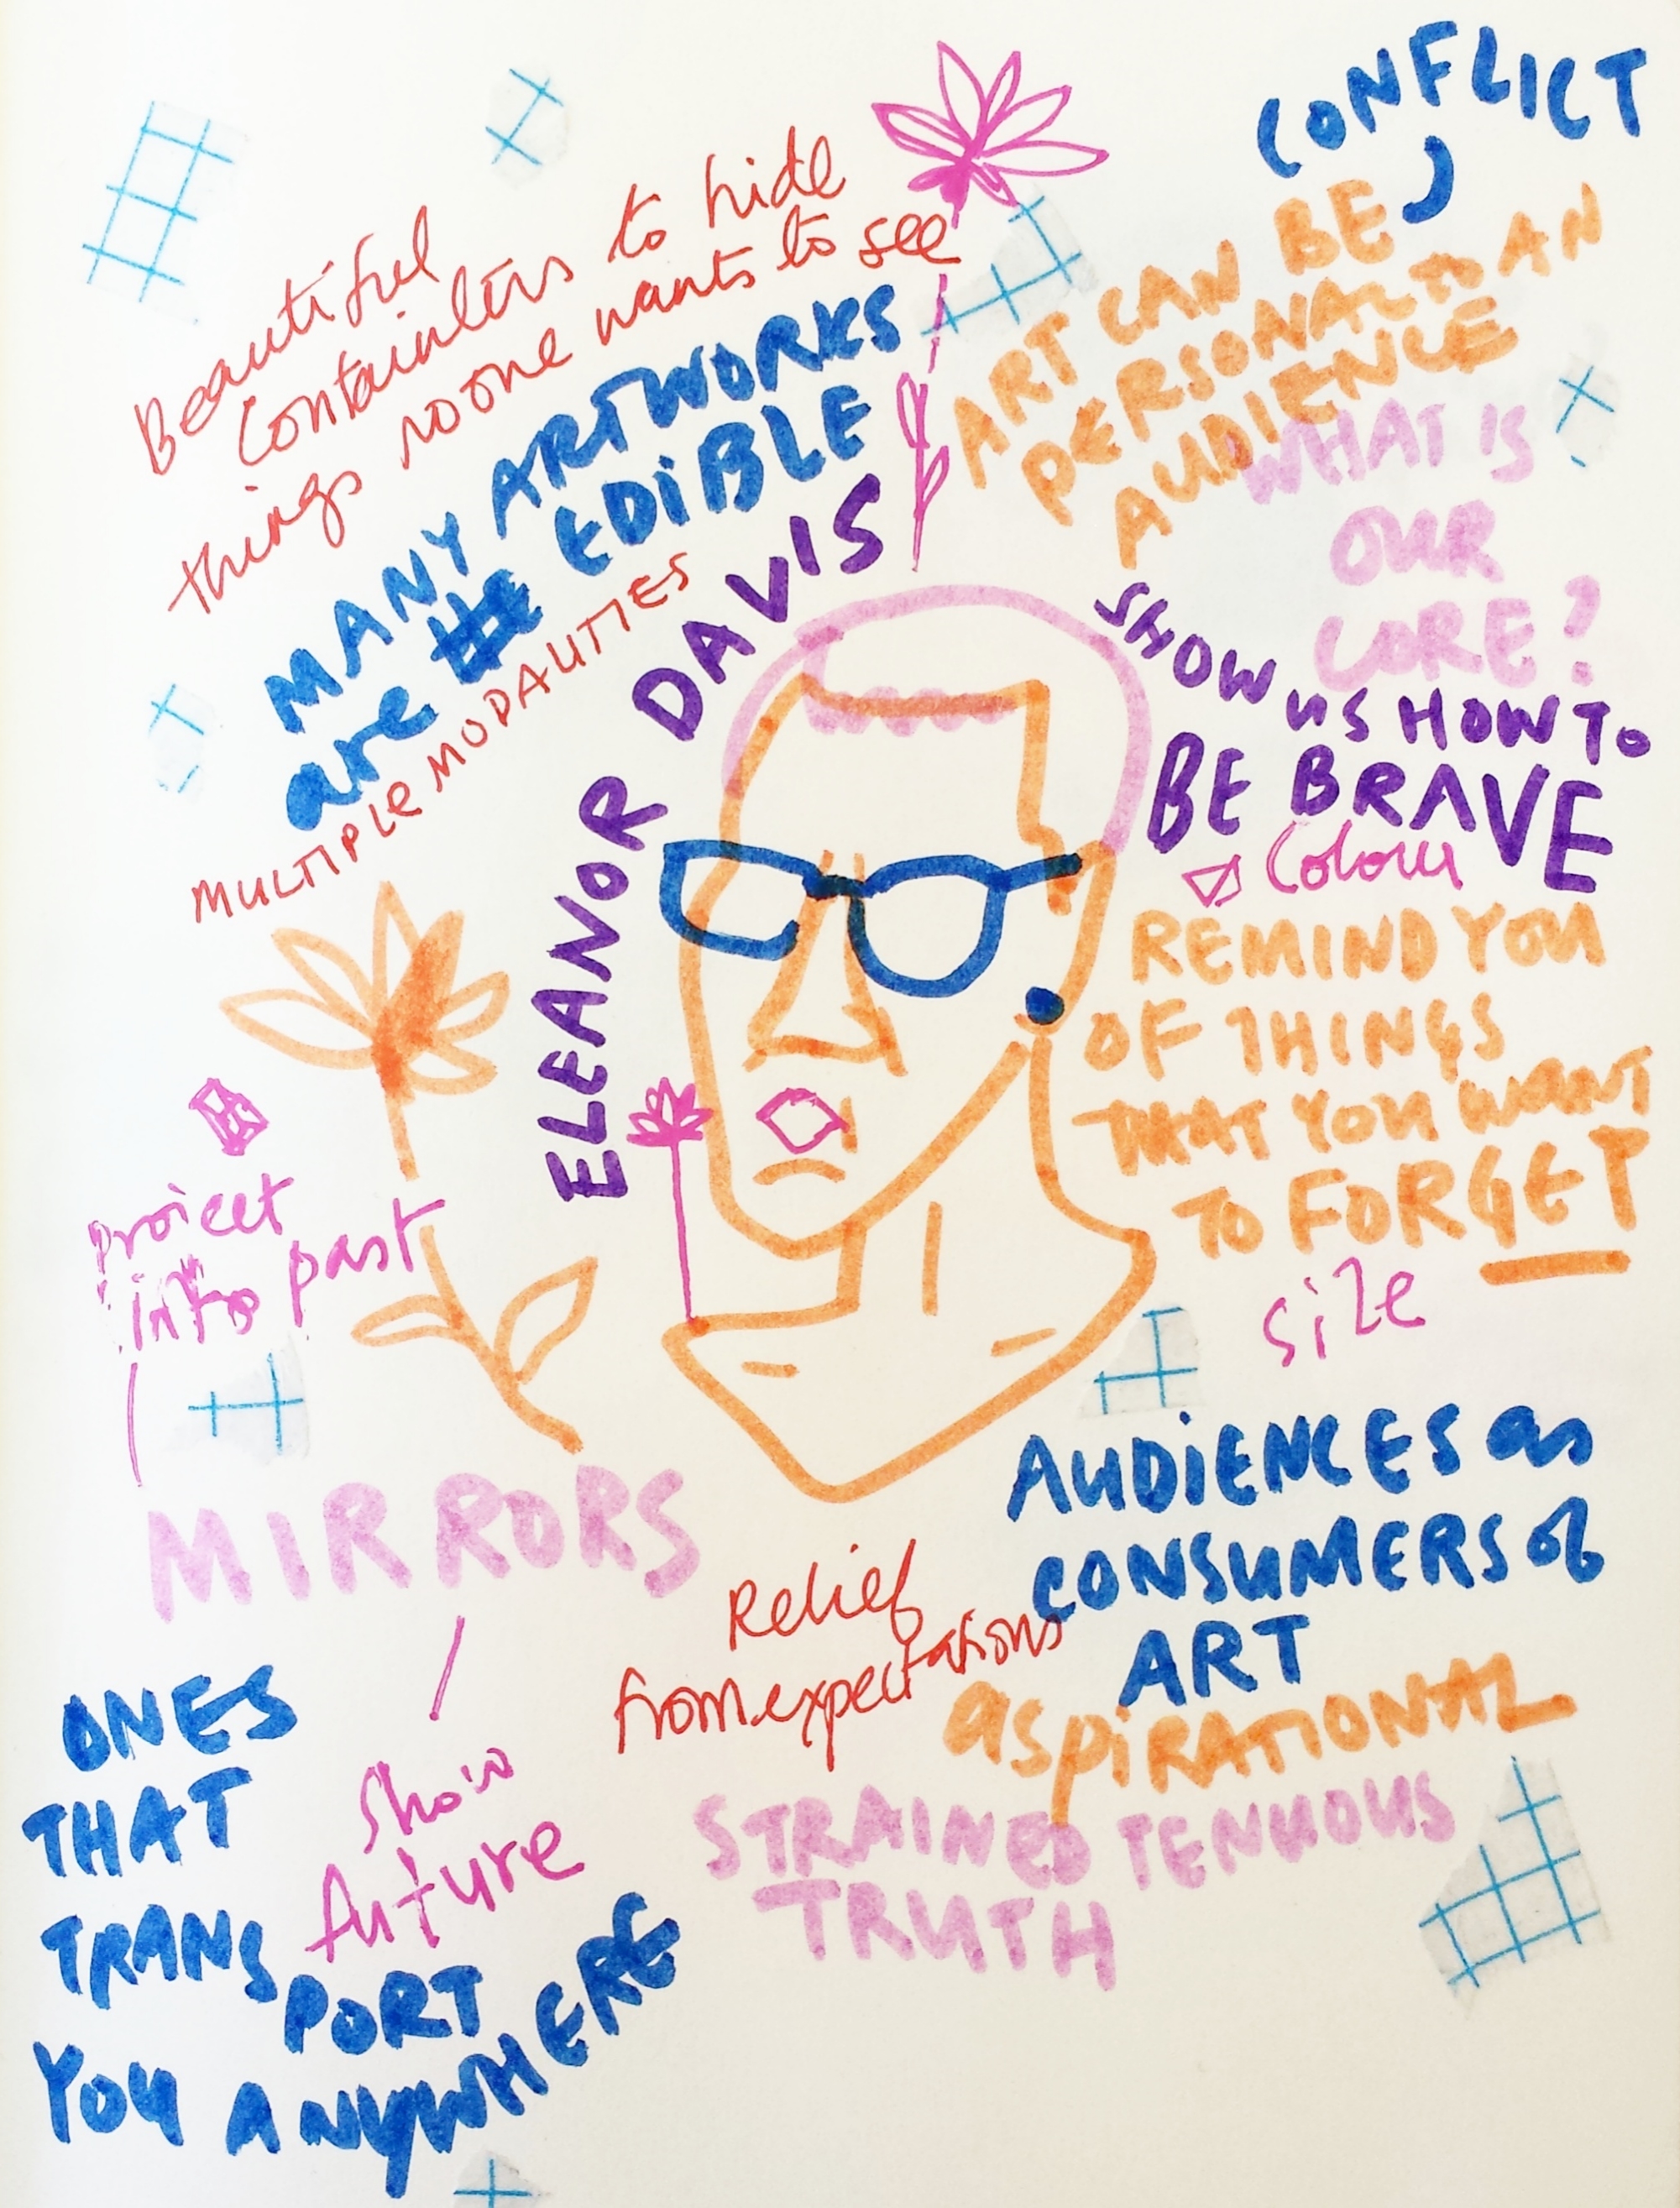 CONFLICT
Beautiful
Containers to hide
things no one wants to see
MANY ARTWORKS
are EDIBLE
MULTIPLE MODALITIES
ELEANOR DAVIS
ART CAN BE
PERSONAL to AN
AUDIENCE
WHAT IS
OUR
CORE?
SHOW US HOW TO
BE BRAVE
Colour
REMIND YOU
OF THINGS
THAT YOU WANT
TO FORGET
size
project
into past
MIRRORS
show
future
ONES
THAT
TRANS
PORT
YOU ANYWHERE
Relief
from expectations
AUDIENCES as
CONSUMERS of
ART
aspiRATIONAL
STRAINED TENUOUS
TRUTH